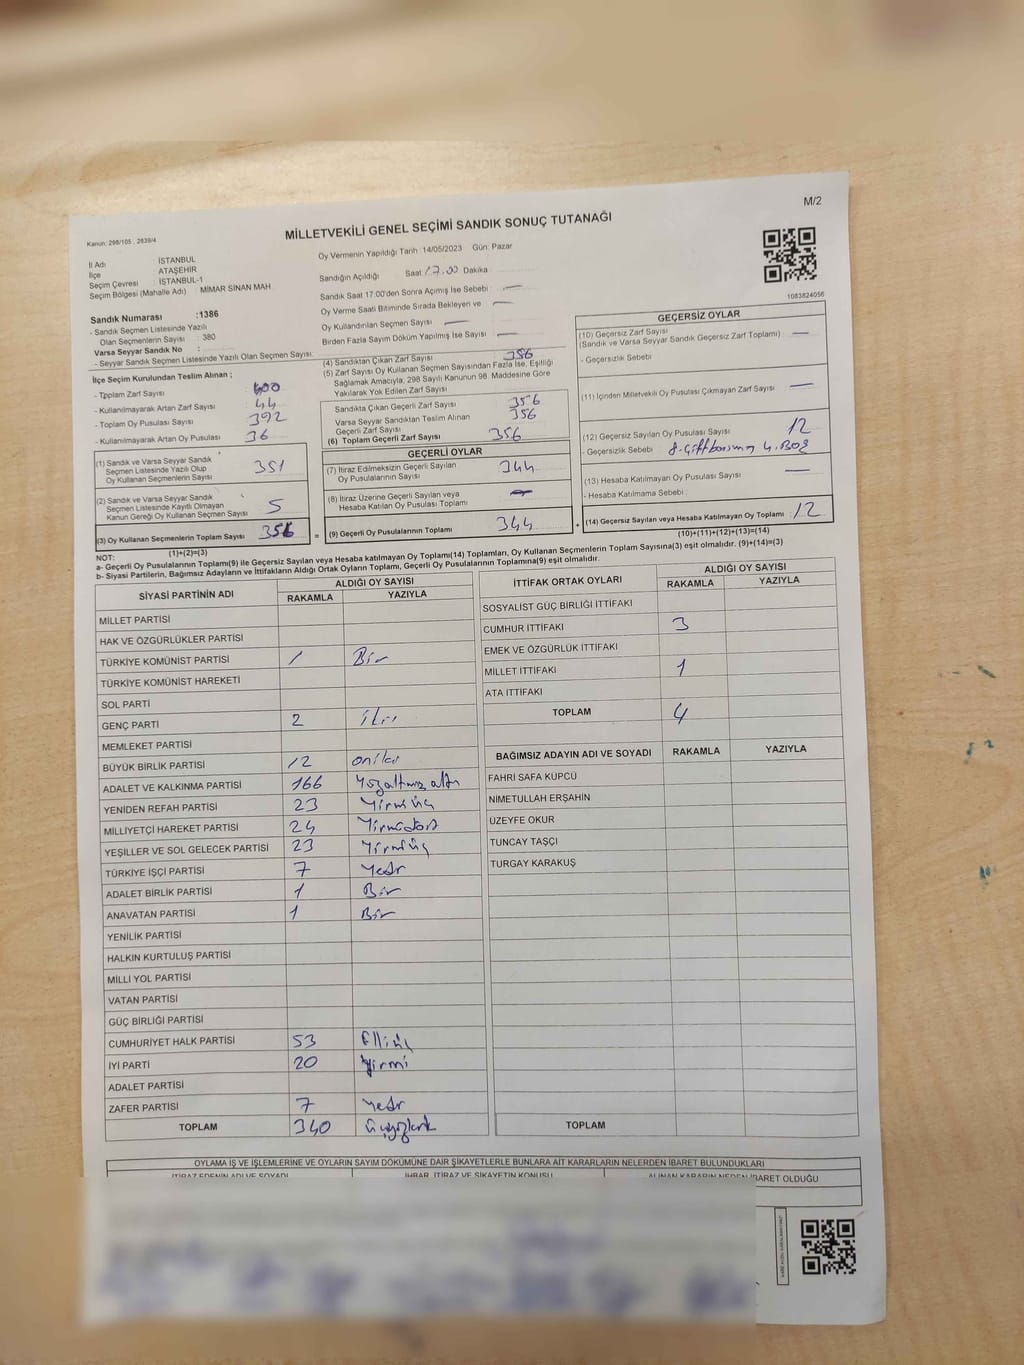 M/2
MİLLETVEKİLİ GENEL SEÇİMİ SANDIK SONUÇ TUTANAĞI
Kanun: 298/105 , 2839/4
İl Adı İSTANBUL
İlçe ATAŞEHİR
Seçim Çevresi İSTANBUL-1
Seçim Bölgesi (Mahalle Adı) : MİMAR SİNAN MAH
Oy Vermenin Yapıldığı Tarih :14/05/2023 Gün: Pazar
Sandığın Açıldığı Saat 17.00 Dakika
Sandık Saat 17:00'den Sonra Açımış İse Sebebi : —
Oy Verme Saati Bitiminde Sırada Bekleyen ve —
Oy Kullandırılan Seçmen Sayısı —
Birden Fazla Sayım Döküm Yapılmış İse Sayısı —
1083824056
Sandık Numarası :1386
- Sandık Seçmen Listesinde Yazılı
Olan Seçmenlerin Sayısı : 380
Varsa Seyyar Sandık No :
- Seyyar Sandık Seçmen Listesinde Yazılı Olan Seçmen Sayısı:
İlçe Seçim Kurulundan Teslim Alınan ;
- Toplam Zarf Sayısı 400
- Kullanılmayarak Artan Zarf Sayısı 44
- Toplam Oy Pusulası Sayısı 392
- Kullanılmayarak Artan Oy Pusulası 36
(1) Sandık ve Varsa Seyyar Sandık
Seçmen Listesinde Yazılı Olup
Oy Kullanan Seçmen Sayısı 351
(2) Sandık ve Varsa Seyyar Sandık
Seçmen Listesinde Kayıtlı Olmayan
Kanun Gereği Oy Kullanan Seçmen Sayısı 5
(3) Oy Kullanan Seçmenlerin Toplam Sayısı 356
(1)+(2)=(3)
(4) Sandıktan Çıkan Zarf Sayısı 356
(5) Zarf Sayısı Oy Kullanan Seçmen Sayısından Fazla İse, Eşitliği
Sağlamak Amacıyla, 298 Sayılı Kanunun 98. Maddesine Göre
Yakılarak Yok Edilen Zarf Sayısı
Sandıkta Çıkan Geçerli Zarf Sayısı 356
Varsa Seyyar Sandıktan Teslim Alınan
Geçerli Zarf Sayısı 356
(6) Toplam Geçerli Zarf Sayısı 356
GEÇERLİ OYLAR
(7) İtiraz Edilmeksizin Geçerli Sayılan
Oy Pusulasının Sayısı 344
(8) İtiraz Üzerine Geçerli Sayılan veya
Hesaba Katılan Oy Pusulası Toplamı —
= (9) Geçerli Oy Pusulalarının Toplamı 344 +
GEÇERSİZ OYLAR
(10) Geçersiz Zarf Sayısı —
(Sandık ve Varsa Seyyar Sandık Geçersiz Zarf Toplamı)
- Geçersizlik Sebebi
(11) İçinden Milletvekili Oy Pusulası Çıkmayan Zarf Sayısı —
(12) Geçersiz Sayılan Oy Pusulası Sayısı 12
- Geçersizlik Sebebi 4. Boş
(13) Hesaba Katılmayan Oy Pusulası Sayısı —
- Hesaba Katılmama Sebebi :
(14) Geçersiz Sayılan veya Hesaba Katılmayan Oy Toplamı 12
(10)+(11)+(12)+(13)=(14)
NOT:
a- Geçerli Oy Pusulalarının Toplamı(9) ile Geçersiz Sayılan veya Hesaba katılmayan Oy Toplamı(14) Toplamları, Oy Kullanan Seçmenlerin Toplam Sayısına(3) eşit olmalıdır. (9)+(14)=(3)
b- Siyasi Partilerin, Bağımsız Adayların ve İttifakların Aldığı Ortak Oyların Toplamı, Geçerli Oy Pusulalarının Toplamına(9) eşit olmalıdır.
SİYASİ PARTİNİN ADI ALDIĞI OY SAYISI
RAKAMLA YAZIYLA
MİLLET PARTİSİ
HAK VE ÖZGÜRLÜKLER PARTİSİ
TÜRKİYE KOMÜNİST PARTİSİ 1 Bir
TÜRKİYE KOMÜNİST HAREKETİ
SOL PARTİ
GENÇ PARTİ 2 iki
MEMLEKET PARTİSİ
BÜYÜK BİRLİK PARTİSİ 12 oniki
ADALET VE KALKINMA PARTİSİ 166 Yüzaltmış altı
YENİDEN REFAH PARTİSİ 23 Yirmi üç
MİLLİYETÇİ HAREKET PARTİSİ 24 Yirmidört
YEŞİLLER VE SOL GELECEK PARTİSİ 23 Yirmiüç
TÜRKİYE İŞÇİ PARTİSİ 7 Yedi
ADALET BİRLİK PARTİSİ 1 Bir
ANAVATAN PARTİSİ 1 Bir
YENİLİK PARTİSİ
HALKIN KURTULUŞ PARTİSİ
MİLLİ YOL PARTİSİ
VATAN PARTİSİ
GÜÇ BİRLİĞİ PARTİSİ
CUMHURİYET HALK PARTİSİ 53 Elliüç
İYİ PARTİ 20 Yirmi
ADALET PARTİSİ
ZAFER PARTİSİ 7 Yedi
TOPLAM 340 üçyüzkırk
İTTİFAK ORTAK OYLARI ALDIĞI OY SAYISI
RAKAMLA YAZIYLA
SOSYALİST GÜÇ BİRLİĞİ İTTİFAKI
CUMHUR İTTİFAKI 3
EMEK VE ÖZGÜRLÜK İTTİFAKI
MİLLET İTTİFAKI 1
ATA İTTİFAKI
TOPLAM 4
BAĞIMSIZ ADAYIN ADI VE SOYADI RAKAMLA YAZIYLA
FAHRİ SAFA KÜPCÜ
NİMETULLAH ERŞAHİN
ÜZEYFE OKUR
TUNCAY TAŞÇI
TURGAY KARAKUŞ
TOPLAM
OYLAMA İŞ VE İŞLEMLERİNE VE OYLARIN SAYIM DÖKÜMÜNE DAİR ŞİKAYETLERLE BUNLARA AİT KARARLARIN NELERDEN İBARET BULUNDUKLARI
İTİRAZ EDENİN ADI VE SOYADI İHBAR, İTİRAZ VE ŞİKAYETİN KONUSU ALINAN KARARIN NEDEN İBARET OLDUĞU